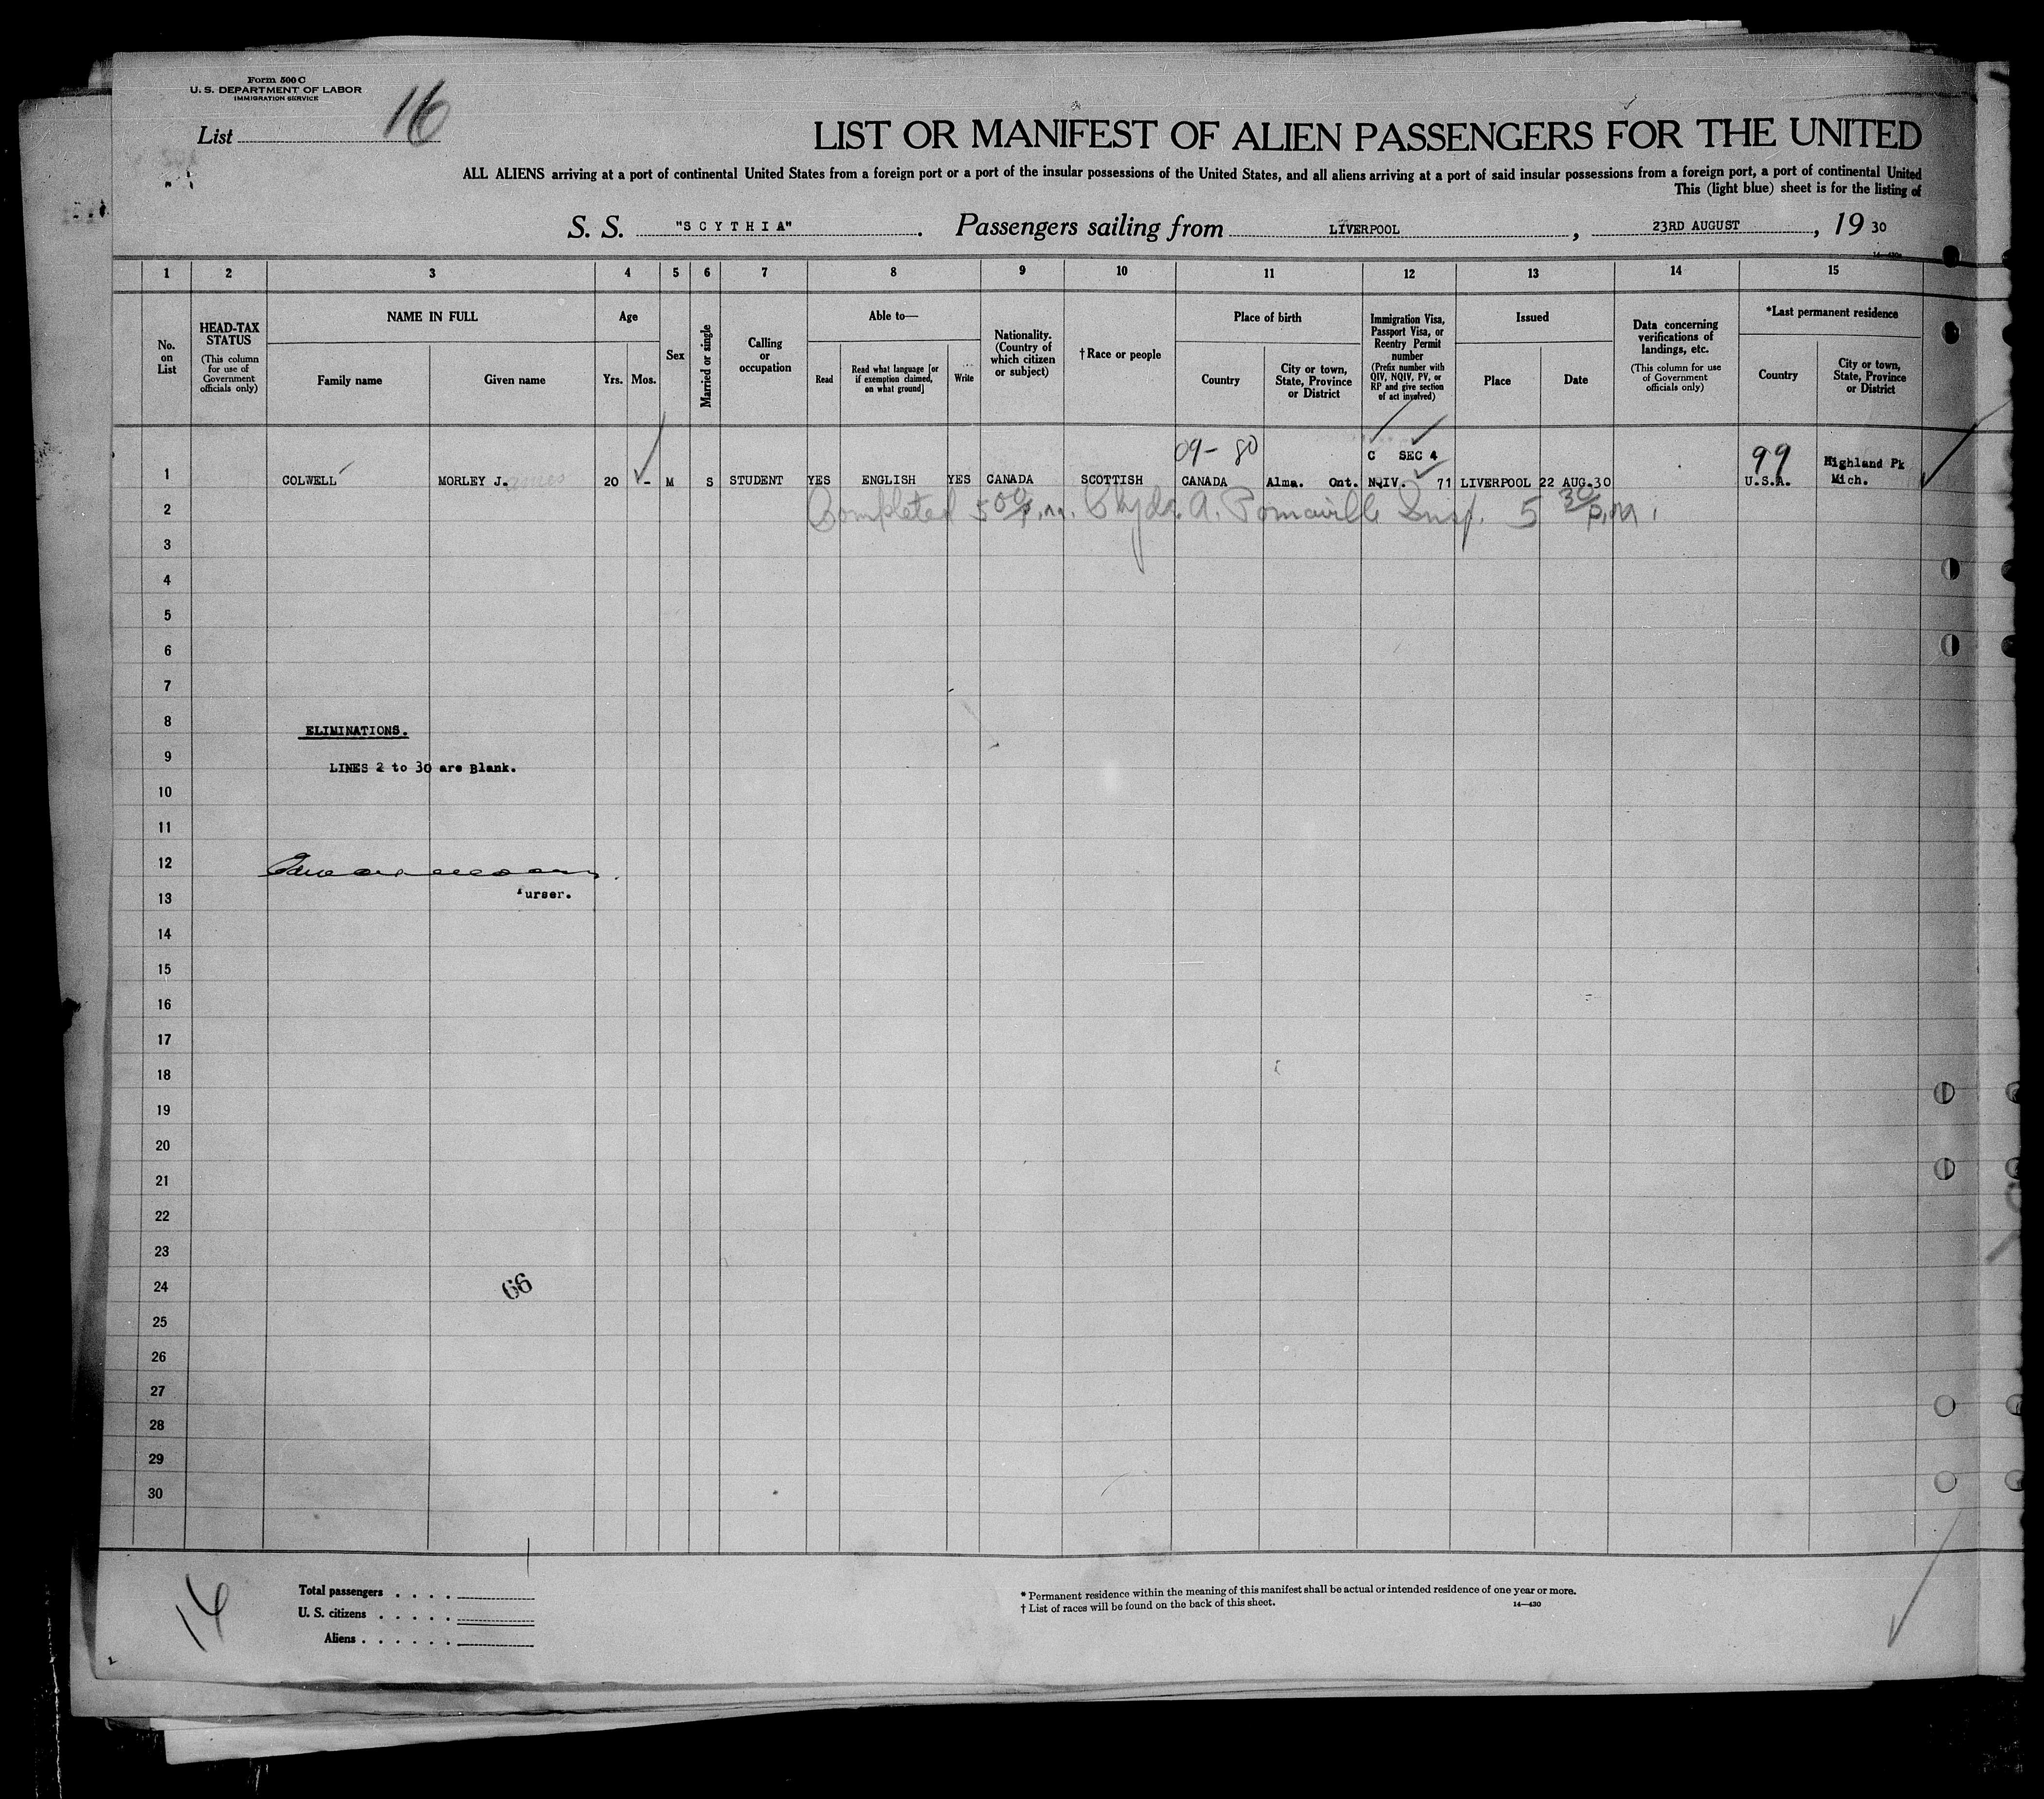 Form 500 C
U. S. DEPARTMENT OF LABOR
IMMIGRATION SERVICE
List 16
LIST OR MANIFEST OF ALIEN PASSENGERS FOR THE UNITED
ALL ALIENS arriving at a port of continental United States from a foreign port or a port of the insular possessions of the United States, and all aliens arriving at a port of said insular possessions from a foreign port, a port of continental United
This (light blue) sheet is for the listing of
S. S. "SCYTHIA". Passengers sailing from LIVERPOOL, 23RD AUGUST, 19 30
14—430a
1 2 3 4 5 6 7 8 9 10 11 12 13 14 15
No. on List
HEAD-TAX STATUS
(This column for use of Government officials only)
NAME IN FULL
Family name
Given name
Age
Yrs.
Mos.
Sex
Married or single
Calling or occupation
Able to—
Read
Read what language [or if exemption claimed, on what ground]
Write
Nationality. (Country of which citizen or subject)
†Race or people
Place of birth
Country
City or town, State, Province or District
Immigration Visa, Passport Visa, or Reentry Permit number
(Prefix number with QIV, NQIV, PV, or RP and give section of act involved)
Issued
Place
Date
Data concerning verifications of landings, etc.
(This column for use of Government officials only)
*Last permanent residence
Country
City or town, State, Province or District
09- 80
C SEC 4
99
Highland Pk
1 COLWELL MORLEY J. ames 20 - M S STUDENT YES ENGLISH YES CANADA SCOTTISH CANADA Alma. Ont. NQIV. 71 LIVERPOOL 22 AUG.30 U.S.A. Mich.
2 Completed 5 00 p.m. A. Pomaville Insp. 5 30 p.m.
3
4
5
6
7
8 ELIMINATIONS.
9 LINES 2 to 30 are Blank.
10
11
12
13 urser.
14
15
16
17
18
19
20
21
22
23
24 66
25
26
27
28
29
30
14
Total passengers . . . .
U. S. citizens . . . . .
Aliens . . . . . .
* Permanent residence within the meaning of this manifest shall be actual or intended residence of one year or more.
† List of races will be found on the back of this sheet. 14—430